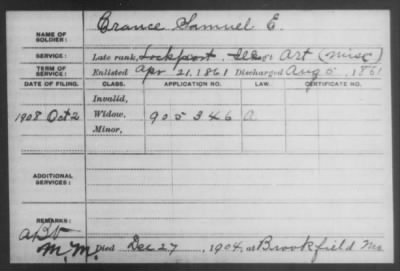 NAME OF SOLDIER: Crance Samuel E.
SERVICE: Late rank, Lockport, Ills Reg't Art (Misc)
TERM OF SERVICE: Enlisted Apr 21, 1861 Discharged Aug 5, 1861
DATE OF FILING. CLASS. APPLICATION NO. LAW. CERTIFICATE NO.
Invalid,
1908 Oct 2 Widow, 905346 A
Minor,
ADDITIONAL SERVICES:
REMARKS:
M.M. Died Dec 27, 1904, at Brookfield Mo